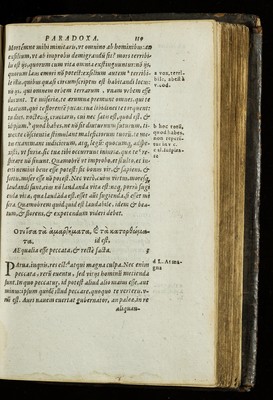 PARADOXA. 119
Mortemne mihi minitaris, ut omnino ab hominibus: an
exilium, ut ab improbis demigrandū sit? mors terribi-
lis est ijs, quorum cum vita omnia extinguuntur: nō ijs,
quorum laus emori nō potest: exilium autem terribi-
le illis, quibus quasi circumscriptus est habitandi locus:
nō ijs, qui omnem orbem terrarum unam urbem esse
ducunt. Te miseriæ, te ærumnæ premunt omnes, qui te
beatum, qui te florentē putas: tuæ libidines te torquent:
tu dies, noctesq́; cruciaris, cui nec satis est, quod est, &
id ipsum, quod habes, ne nō sit diuturnum, times:
te conscientiæ stimulant maleficiorum tuorū: te me-
tus exanimant iudiciorum, atq́; legū: quocunq; aspexi-
sti, ut furiæ, sic tuæ tibi occurrunt iniuriæ, quæ te re-
spirare nō sinunt. Quamobrē ut improbo, et stulto, et in-
erti nemini bene esse potest: sic bonus vir, & sapiens, &
fortis, miser esse nō potest. Nec verò, cuius virtus, moresq́;
laudandi sunt, eius nō laudanda vita est: neq; porrò fugi
enda vita, quæ laudāda est. esset autē fugienda, si esset mi-
sera. Quamobrem quidquid est laudabile, idem & bea-
tum, & florens, & expetendum videri debet.
a vox, terri-
bile, abest à
v. cod.
b hoc totū,
quod habes,
non reperi-
tur in v. c.
ὅτι ἴσα τὰ ἁμαρτήματα, ϗ τὰ κατορθώμα-
τα. id est,
Aequalia esse peccata, & rectè facta.
PArua, inquis, res est: at qui magna culpa. Nec enim
peccata, rerū euentu, sed vitijs hominū metienda
sunt. In quo peccatur, id potest aliud alio maius esse, aut
minus: ipsum quidē illud peccare, quoquo te verteris, v-
nū est. Auri nauem euertat gubernator, an paleæ, in re
d L. At ma-
gna
aliquan-